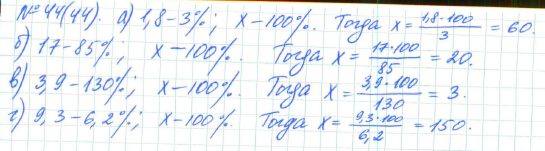 № 44(44). а) 1,8-3%; x-100%. Тогда x = 1,8·100/3 = 60.
б) 17-85%; x-100%. Тогда x = 17·100/85 = 20.
в) 3,9-130%; x-100%. Тогда x = 3,9·100/130 = 3.
г) 9,3-6,2%; x-100%. Тогда x = 9,3·100/6,2 = 150.